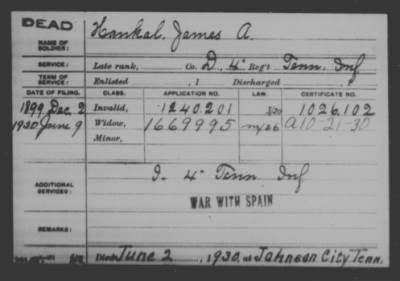 DEAD
NAME OF SOLDIER: Hankal, James A.
SERVICE: Late rank, Co. D, 4" Reg't Tenn. Inf
TERM OF SERVICE: Enlisted , 1 Discharged , 1
DATE OF FILING. CLASS. APPLICATION NO. LAW. CERTIFICATE NO.
1899 Dec 2 Invalid, 1240201 1026102
1930 June 9 Widow, 1669995 my26 A10-21-30
Minor,
ADDITIONAL SERVICES: I 4" Tenn Inf
WAR WITH SPAIN
REMARKS:
Died June 2, 1930, at Johnson City Tenn.